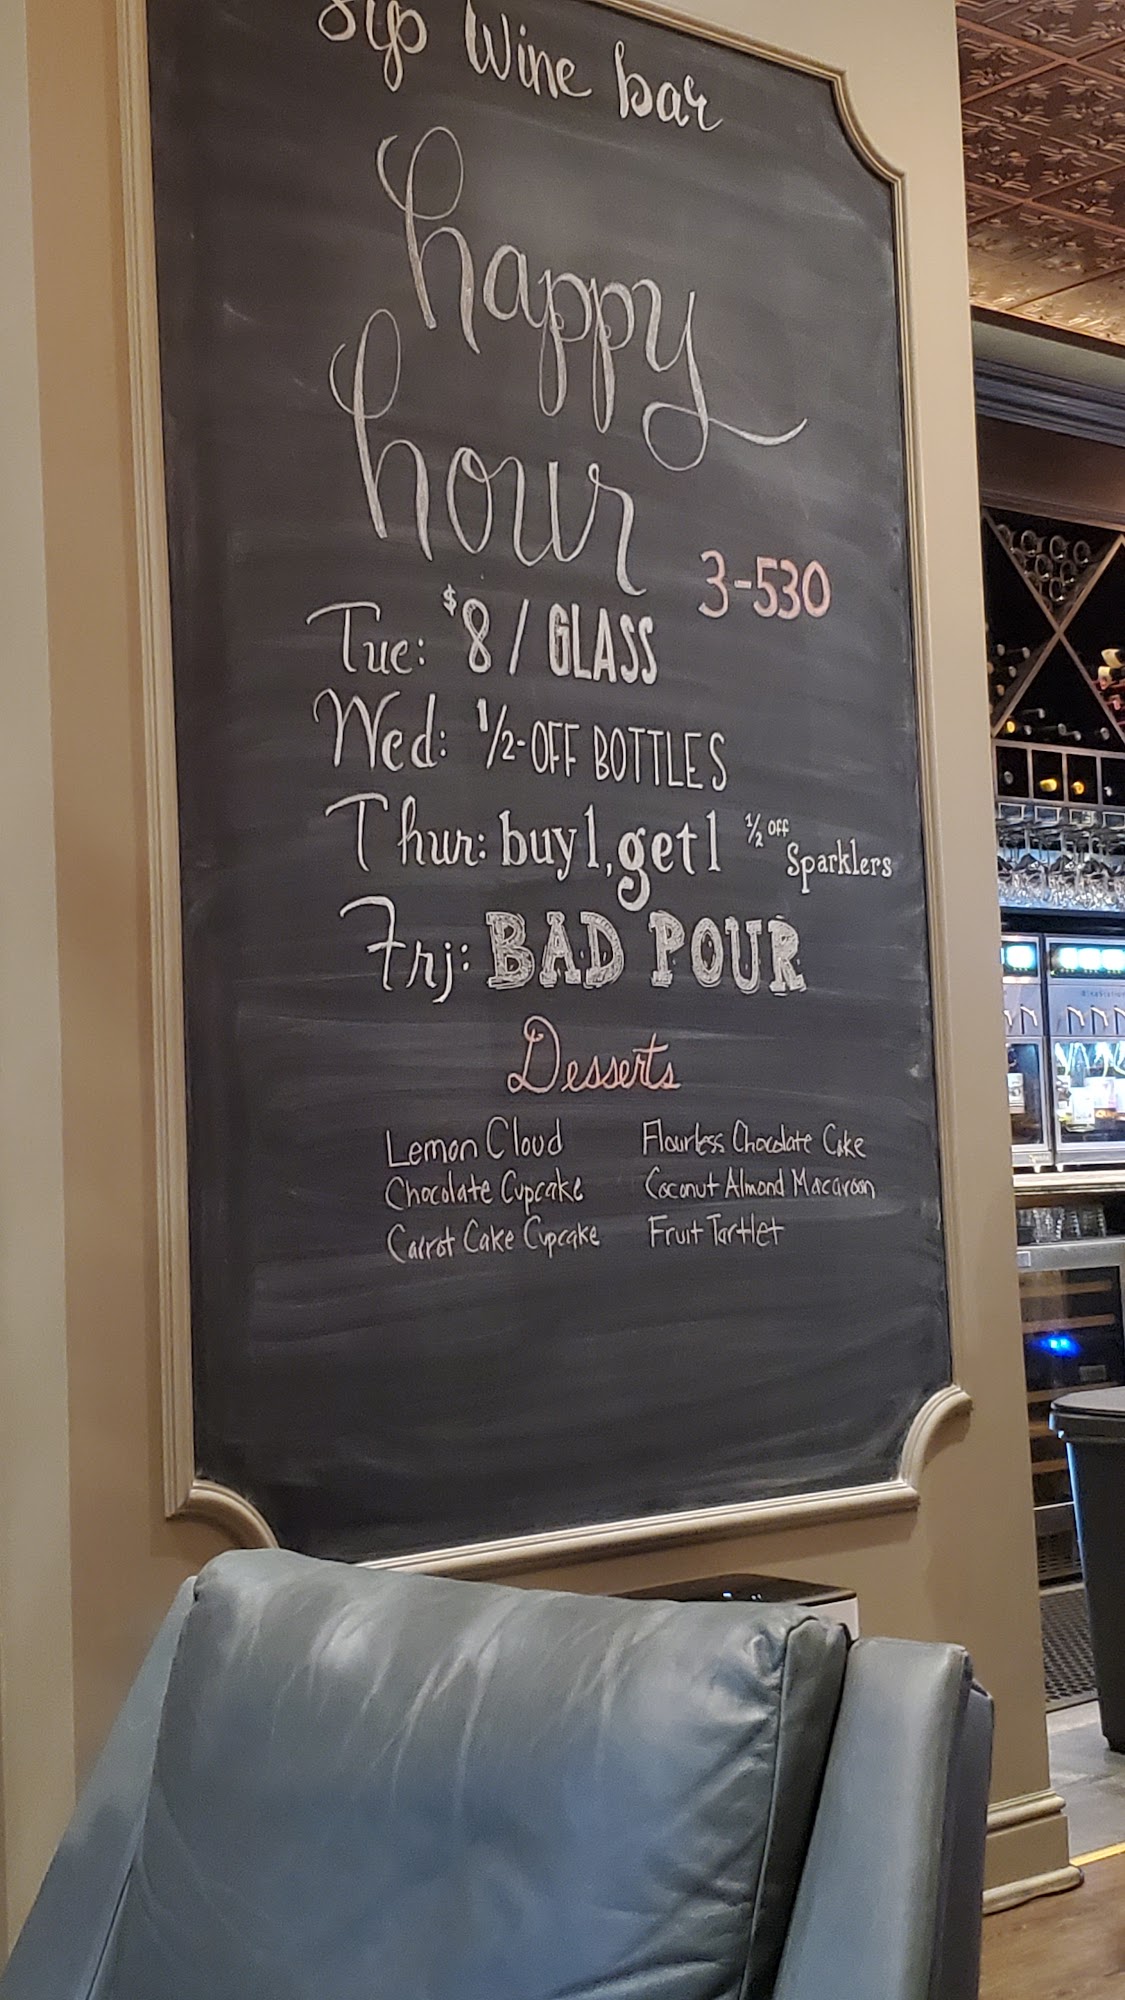 Sip Wine bar
happy
hour
3-530
Tue: $8 / GLASS
Wed: 1/2-OFF BOTTLES
Thur: buy 1, get 1 1/2 OFF Sparklers
Fri: BAD POUR
Desserts
Lemon Cloud
Chocolate Cupcake
Carrot Cake Cupcake
Flourless Chocolate Cake
Coconut Almond Macaroon
Fruit Tartlet